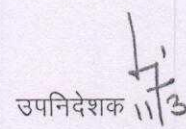 उपनिदेशक 11/3